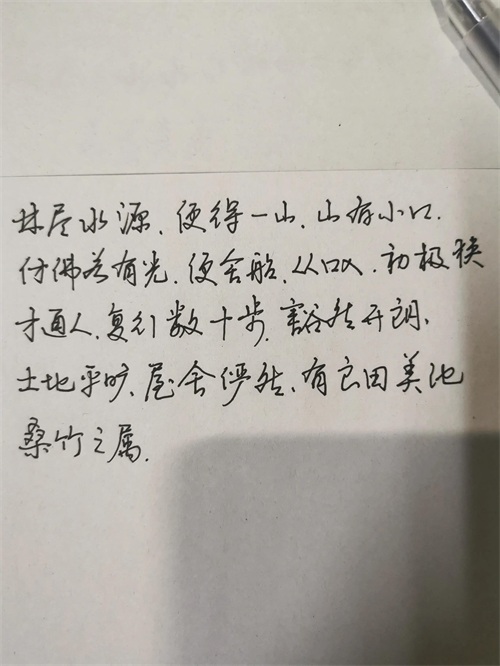 林尽水源、便得一山、山有小口.
仿佛若有光、便舍船、从口入、初极狭
才通人、复行数十步、豁然开朗、
土地平旷、屋舍俨然、有良田美池
桑竹之属.